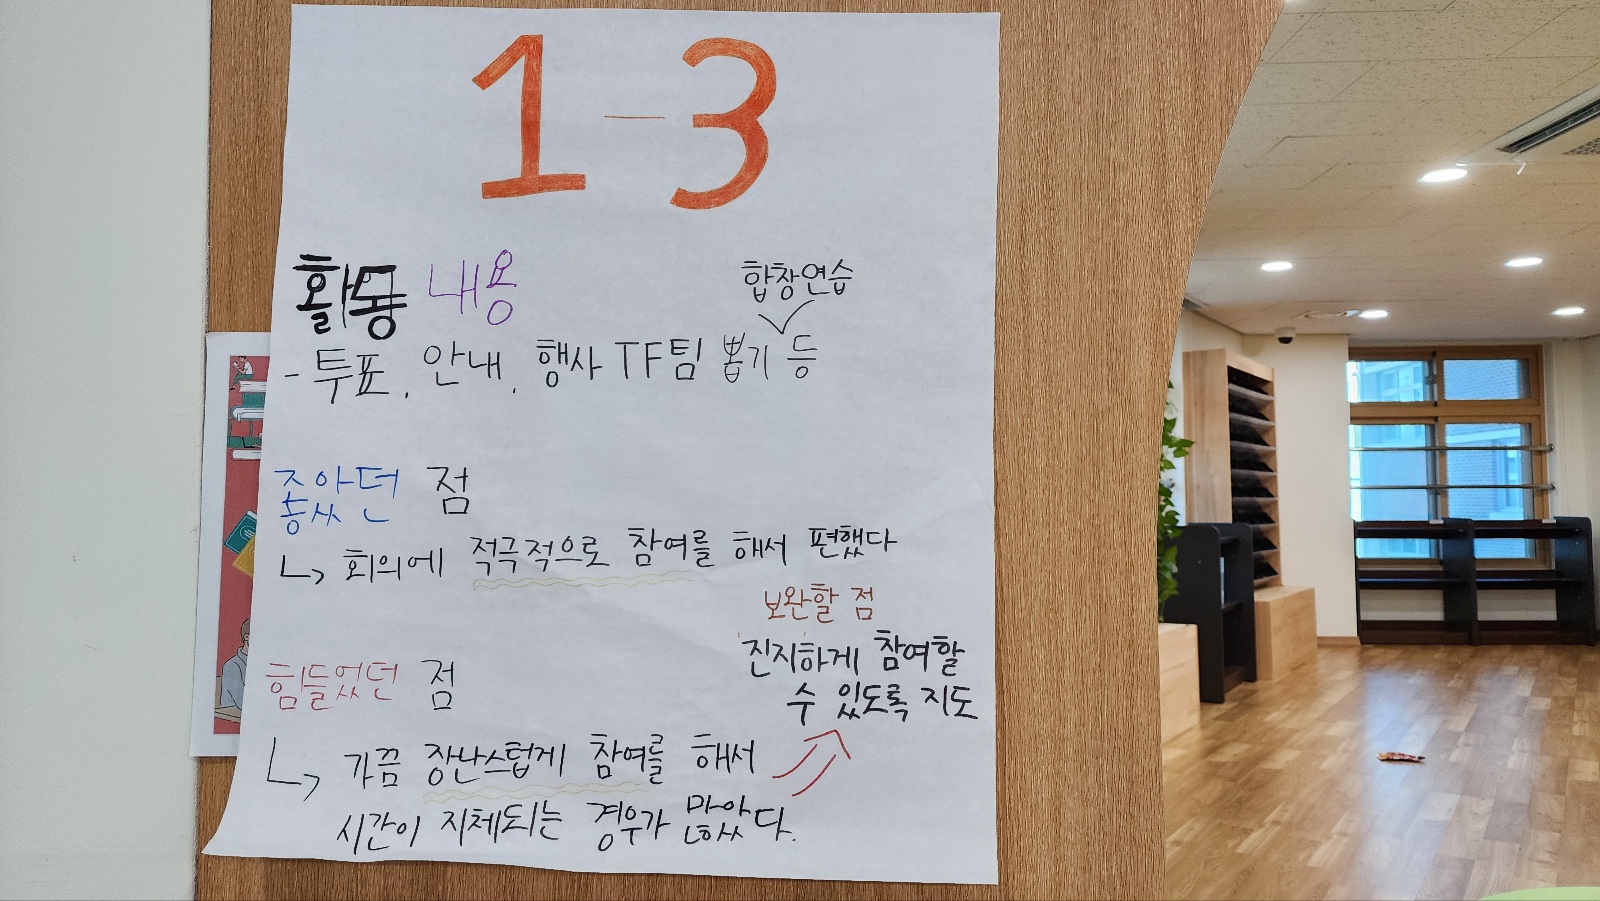 1-3
활동 내용
합창연습
- 투표, 안내, 행사 TF팀 뽑기 등
좋았던 점
↳ 회의에 적극적으로 참여를 해서 편했다
보완할 점
진지하게 참여할
수 있도록 지도
힘들었던 점
↳ 가끔 장난스럽게 참여를 해서
시간이 지체되는 경우가 많았다.